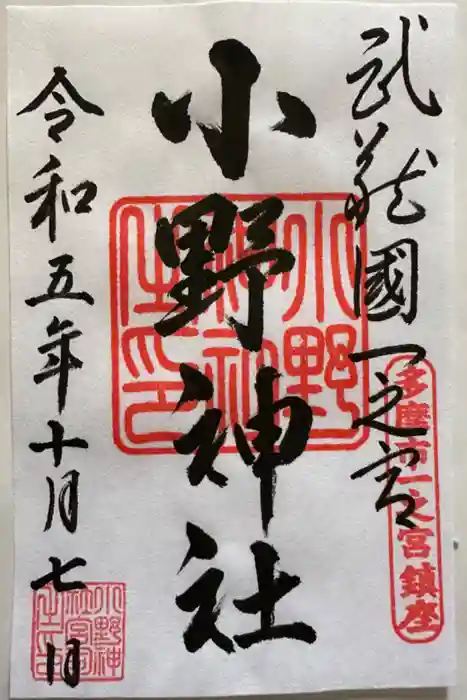 武蔵國一之宮
多摩市一之宮鎮座
小野神社
小野神社之印
令和五年十月七日
小野神社宮司之印